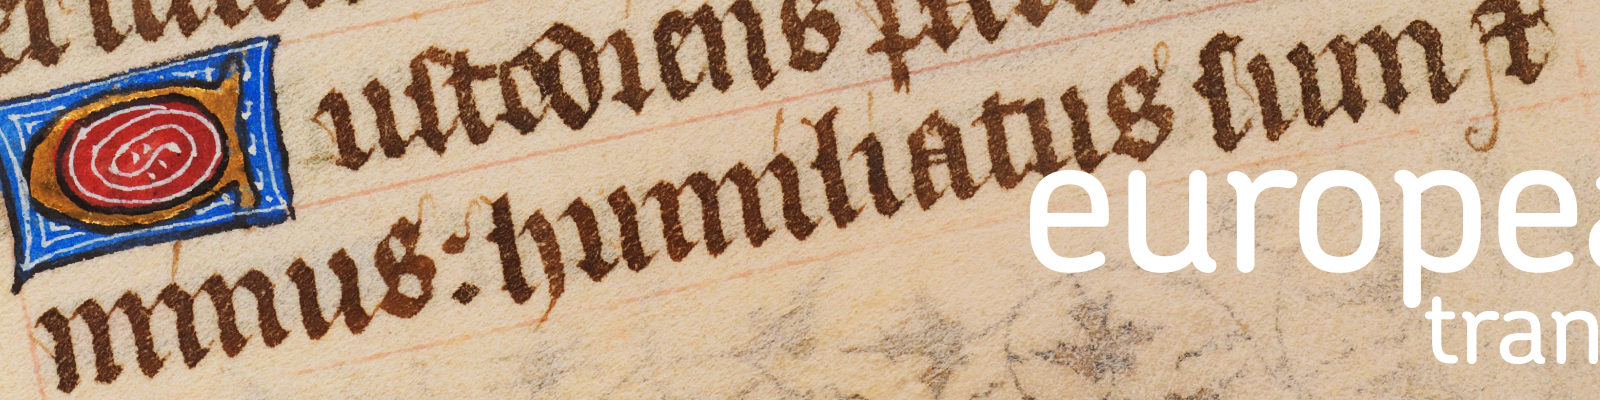 Custodiens
minus: humiliatus sum
europea
tran